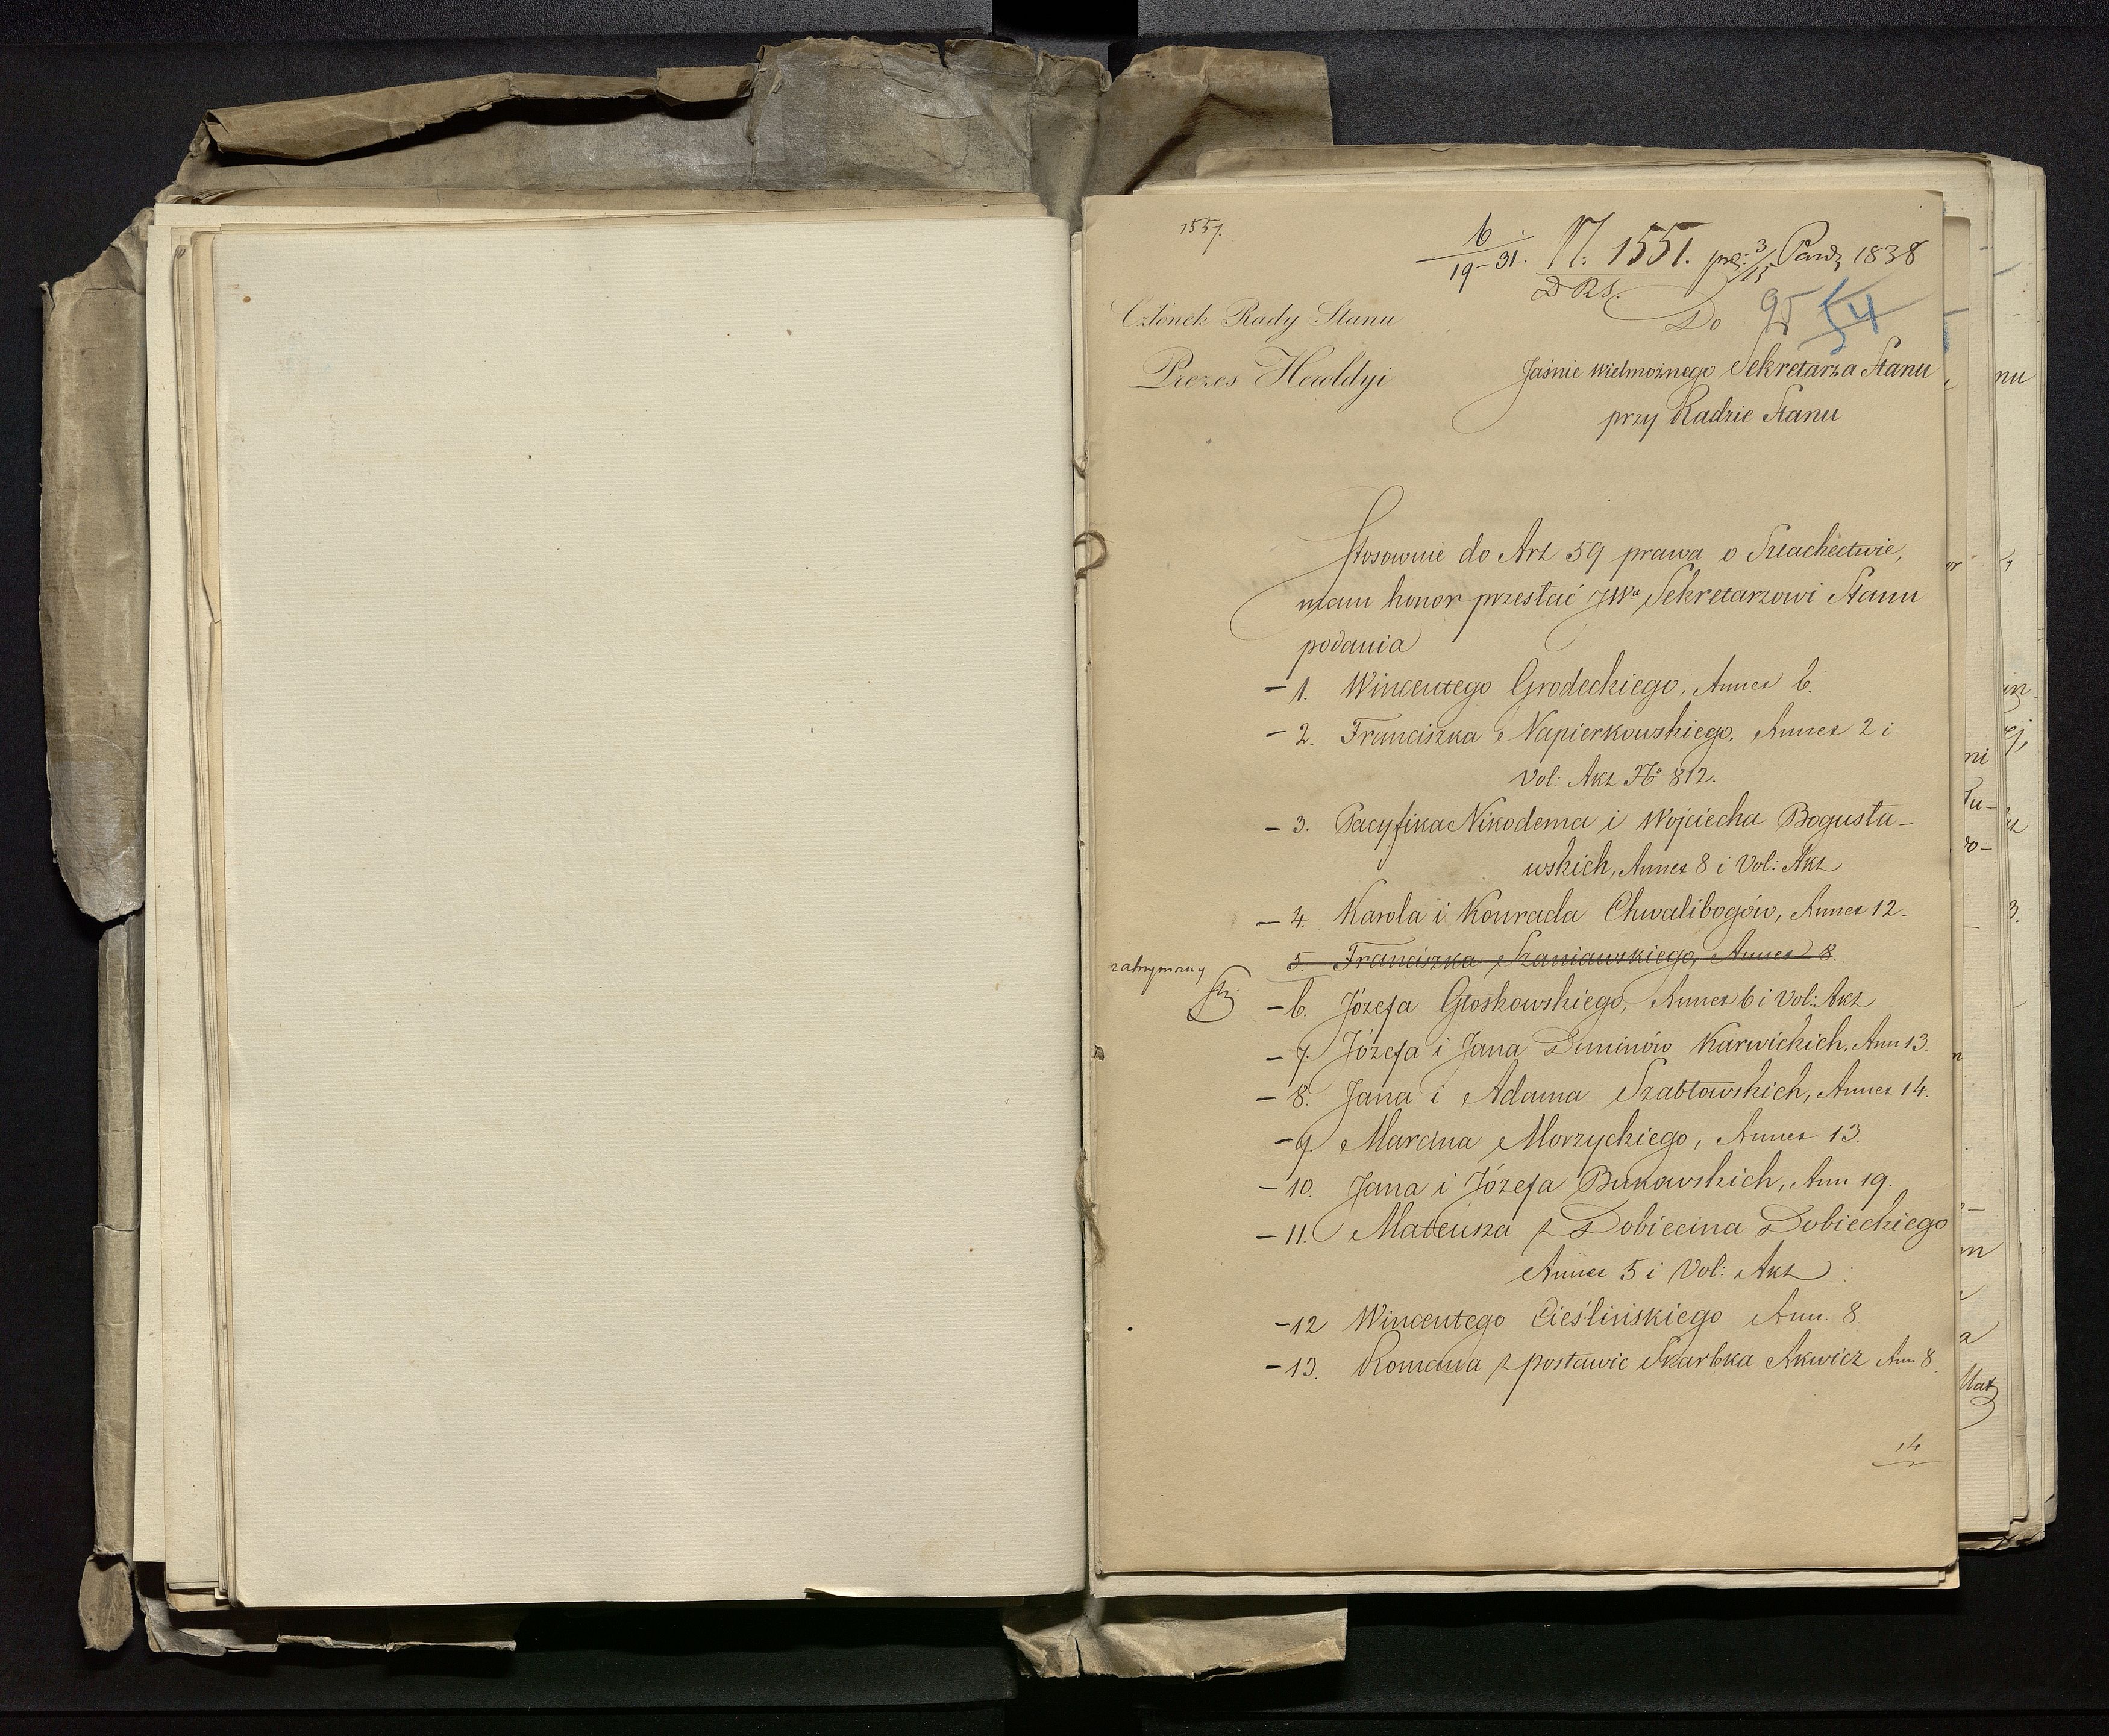 1557.
6/19-31. N. 1551. prz: 3/15 Paźdz 1838
DRS.
Członek Rady Stanu
Prezes Heroldyi
Do
95 54
Jaśnie Wielmożnego Sekretarza Stanu
przy Radzie Stanu
Stosownie do Art 59 prawa o Szlachectwie,
mam honor przesłać JWu Sekretarzowi Stanu
podania
- 1. Wincentego Grodeckiego, Annex 6.
- 2. Franciszka Napierkowskiego, Annex 2 i
Vol: Akt No 812.
- 3. Pacyfika Nikodema i Wojciecha Bogusła-
wskich, Annex 8 i Vol: Akt
- 4. Karola i Konrada Chwalibogów, Annex 12.
5. Franciszka Szaniawskiego, Annex 8.
zatrzymany
- 6. Józefa Głoskowskiego, Annex 6 i Vol: Akt
- 7. Józefa i Jana Duninów Karwickich, Ann 13.
- 8. Jana i Adama Szabławskich, Annex 14.
- 9. Marcina Morzyckiego, Annex 13.
- 10. Jana i Józefa Bukowskich, Ann 19.
- 11. Mateusza z Dobiecina Dobieckiego
Annex 5 i Vol: Akt
- 12 Wincentego Cieślińskiego Ann. 8.
- 13. Romana z postawic Skarbka Akwicz Ann 8.
14